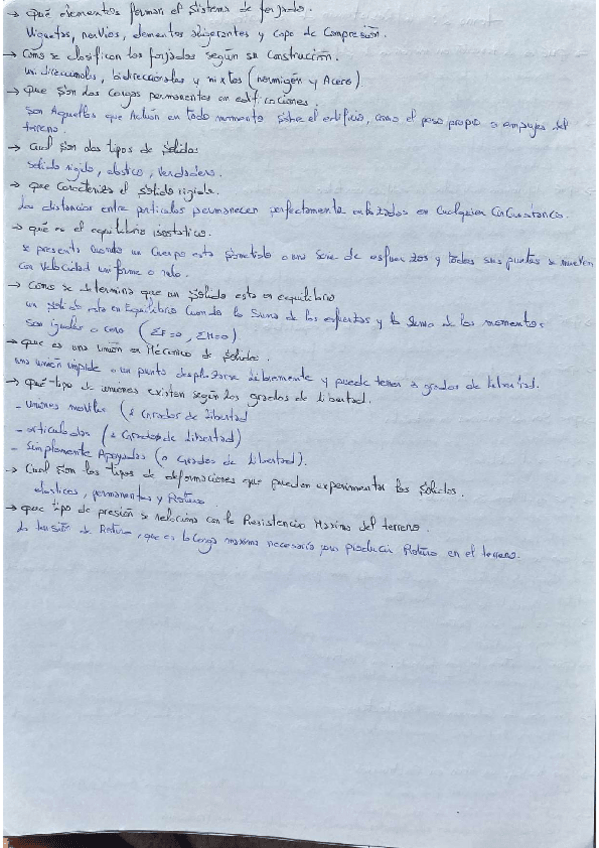 → Qué elementos forman el Sistema de forjado.
Viguetas, nervios, elementos aligerantes y capa de Compresión.
→ Cómo se clasifican los forjados según su Construcción.
unidireccionales, bidireccionales y mixtos (hormigón y Acero)
→ Que son las Cargas permanentes en edificaciones.
Son Aquellas que Actúan en todo momento sobre el edificio, como el peso propio o empujes del
terreno.
→ Cual son los tipos de Solidos
solido rigido, elastico, verdadero.
→ que Caracteriza el solido rigido.
Las distancias entre particulas permanecen perfectamente en Cualquier Circunstancia.
→ qué es el equilibrio isostatico.
se presenta Cuando un Cuerpo esta sometido a una serie de esfuerzos y todos sus puntos se mueven
con velocidad uniforme o nula.
→ Como se determina que un Solido esta en equilibrio
un solido esta en Equilibrio Cuando la Suma de los esfuerzos y la Suma de los momentos
Son iguales a cero (ΣF=0, ΣM=0)
→ que es una unión en Mécanica de Solidos.
una unión impide a un punto desplazarse libremente y puede tener 3 grados de libertad.
→ qué tipo de uniones existen según los grados de libertad.
- uniones moviles ( Grados de Libertad
- articuladas ( Grados de Libertad)
- Simplemente Apoyadas (0 Grados de Libertad).
→ Cual son los tipos de deformaciones que pueden experimentar los Solidos.
elasticas, permanentes y Rotura
→ que tipo de presión se relaciona con la Resistencia Maxima del terreno.
La tensión de Rotura, que es la Carga maxima necesaria para producir Rotura en el terreno.